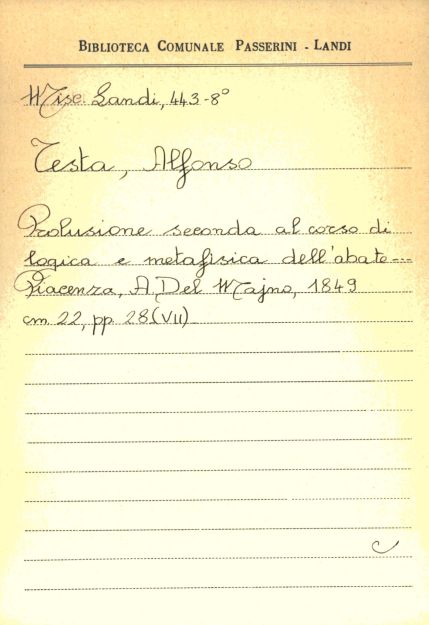 BIBLIOTECA COMUNALE PASSERINI - LANDI
Misc. Landi, 443-8°
Testa, Alfonso
Prolusione seconda al corso di
logica e metafisica dell'abate ---
Piacenza, A. Del Majno, 1849
cm 22, pp. 28 (VII)